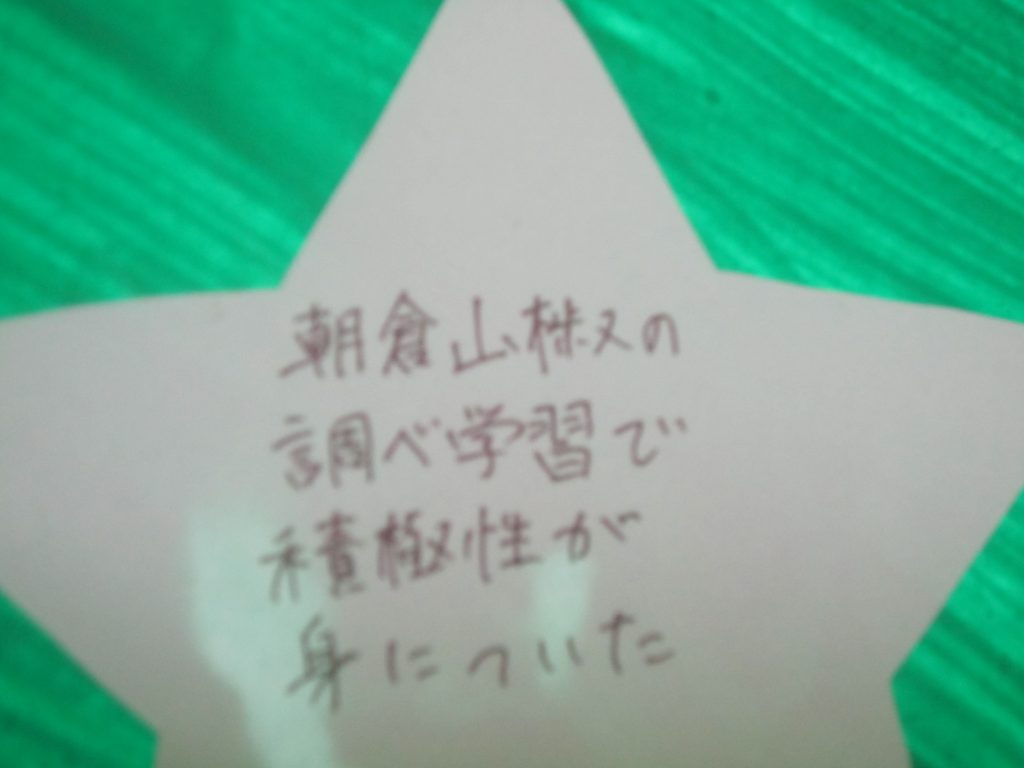 朝倉山株又の
調べ学習で
積極性が
身についた